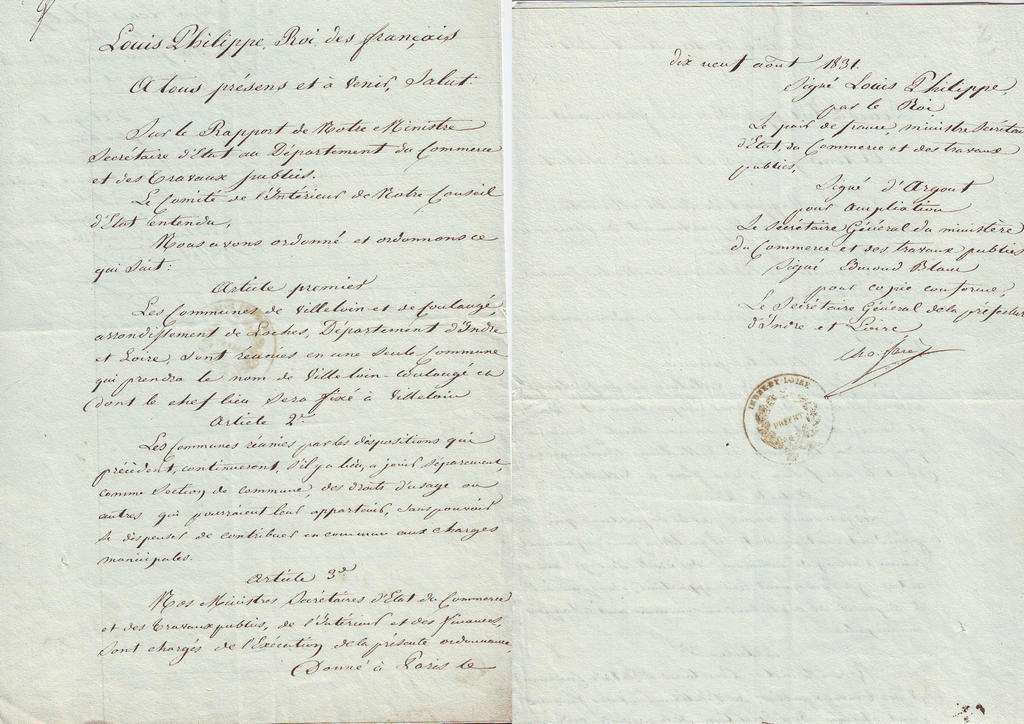 Louis Philippe, Roi des français
A tous présens et à venir, Salut.
Sur le Rapport de Notre Ministre
Secrétaire d'Etat au Département du Commerce
et des Travaux publics.
Le Comité de l'Intérieur de Notre Conseil
d'Etat entendu,
Nous avons ordonné et ordonnons ce
qui suit:
Article premier
Les Communes de Villeloin et de Coulangé,
arrondissement de Loches, Département d'Indre
et Loire, sont réunies en une seule Commune
qui prendra le nom de Villeloin-Coulangé et
dont le chef lieu sera fixé à Villeloin
Article 2e
Les Communes réunies par les dispositions qui
précèdent, continueront, s'il y a lieu, à jouir séparément,
comme Section de commune, des droits d'usage ou
autres qui pourraient leur appartenir, sans pouvoir
se dispenser de contribuer en commun aux charges
municipales.
Article 3e
Nos Ministres Secrétaires d'Etat du Commerce
et des Travaux publics, de l'Intérieur et des Finances,
sont chargés de l'Exécution de la présente ordonnance,
Donné à Paris le
dix neuf août 1831
Signé Louis Philippe,
par le Roi
Le pair de france, ministre Secrétaire
d'Etat, du Commerce et des travaux
publics,
Signé d'Argout
pour ampliation
Le Secrétaire Général du ministère
du Commerce et des travaux publics
Signé Edmond Blanc
pour copie conforme,
Le Secrétaire Général de la préfecture
d'Indre et Loire
INDRE ET LOIRE
PREFET